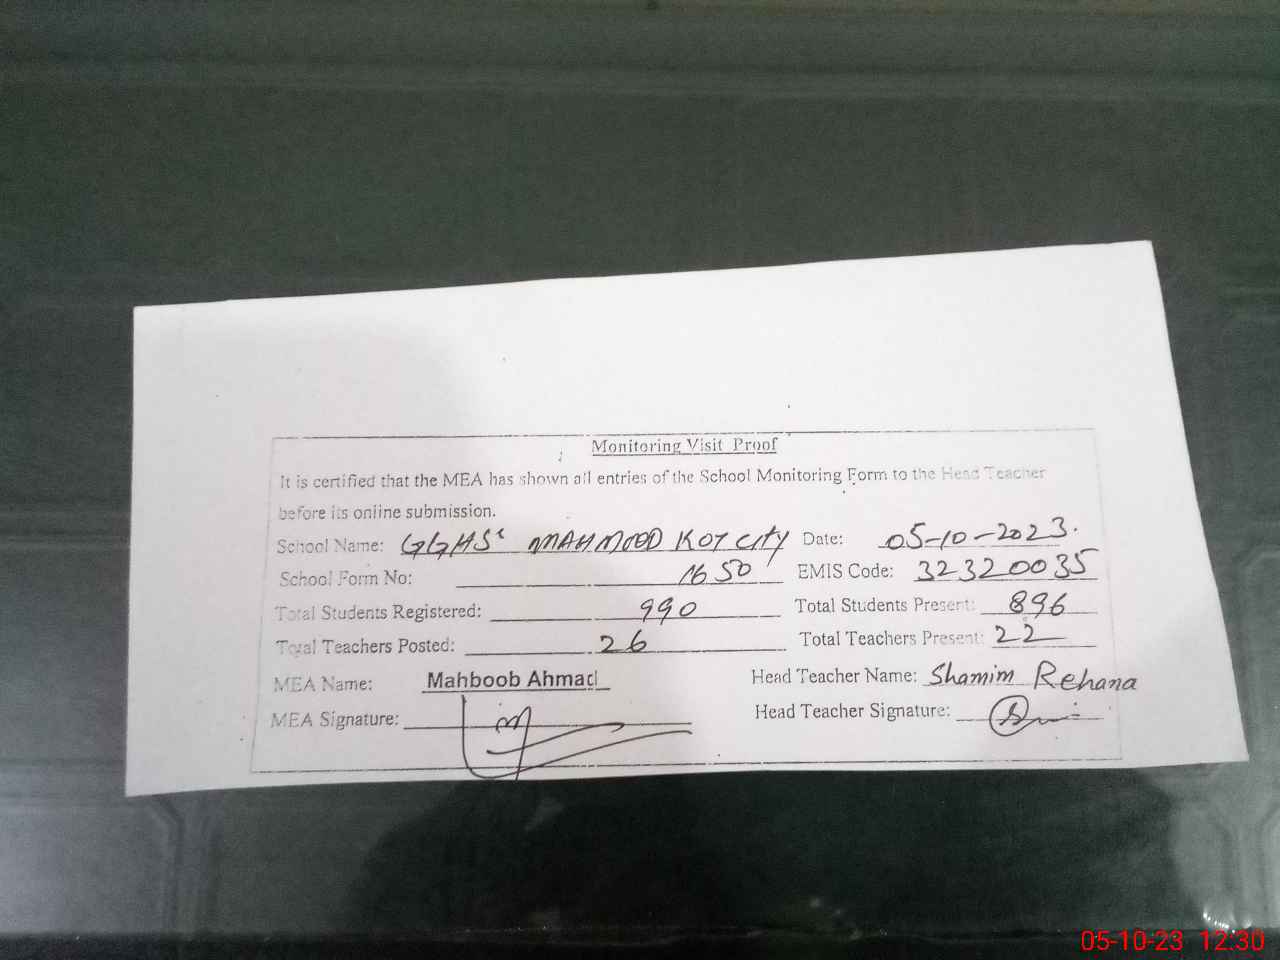 Monitoring Visit Proof
It is certified that the MEA has shown all entries of the School Monitoring Form to the Head Teacher
before its online submission.
School Name: GGHSS MAHMOOD KOT CITY Date: 05-10-2023.
School Form No: 1650 EMIS Code: 32320035
Total Students Registered: 990 Total Students Present: 896
Total Teachers Posted: 26 Total Teachers Present: 22
MEA Name: Mahboob Ahmad Head Teacher Name: Shamim Rehana
MEA Signature: Head Teacher Signature:
05-10-23 12:30